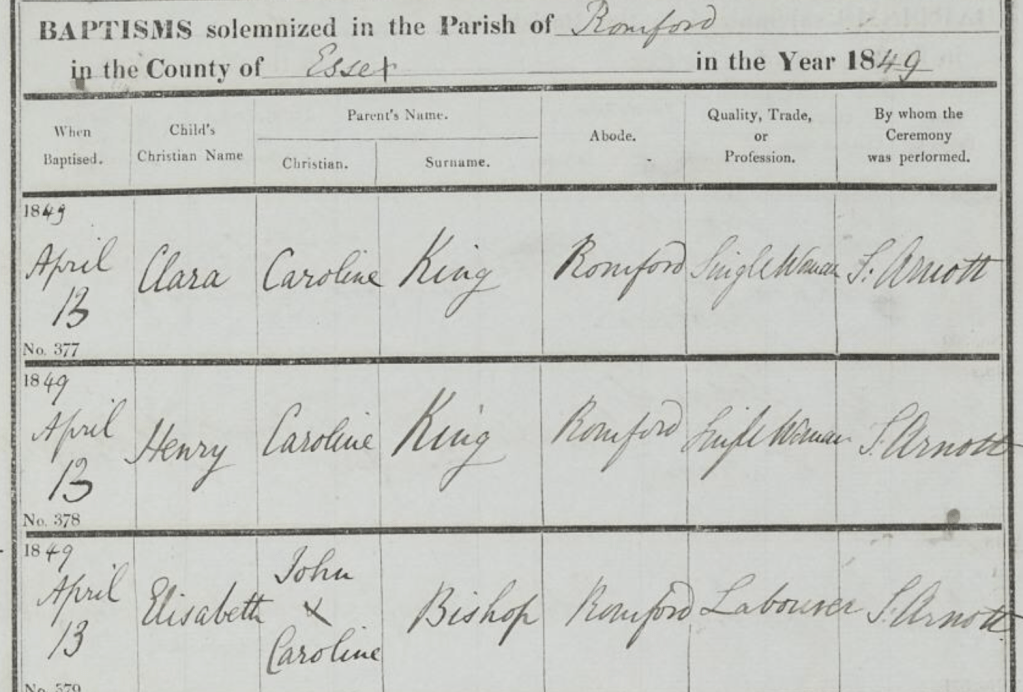 BAPTISMS solemnized in the Parish of Romford
in the County of Essex in the Year 1849
When Baptised. Child's Christian Name Parent's Name. Christian. Surname. Abode. Quality, Trade, or Profession. By whom the Ceremony was performed.
1849
April 13 Clara Caroline King Romford Single Woman S. Arnott
No. 377
1849
April 13 Henry Caroline King Romford Single Woman S. Arnott
No. 378
1849
April 13 Elisabeth John & Caroline Bishop Romford Labourer S. Arnott
No. 379